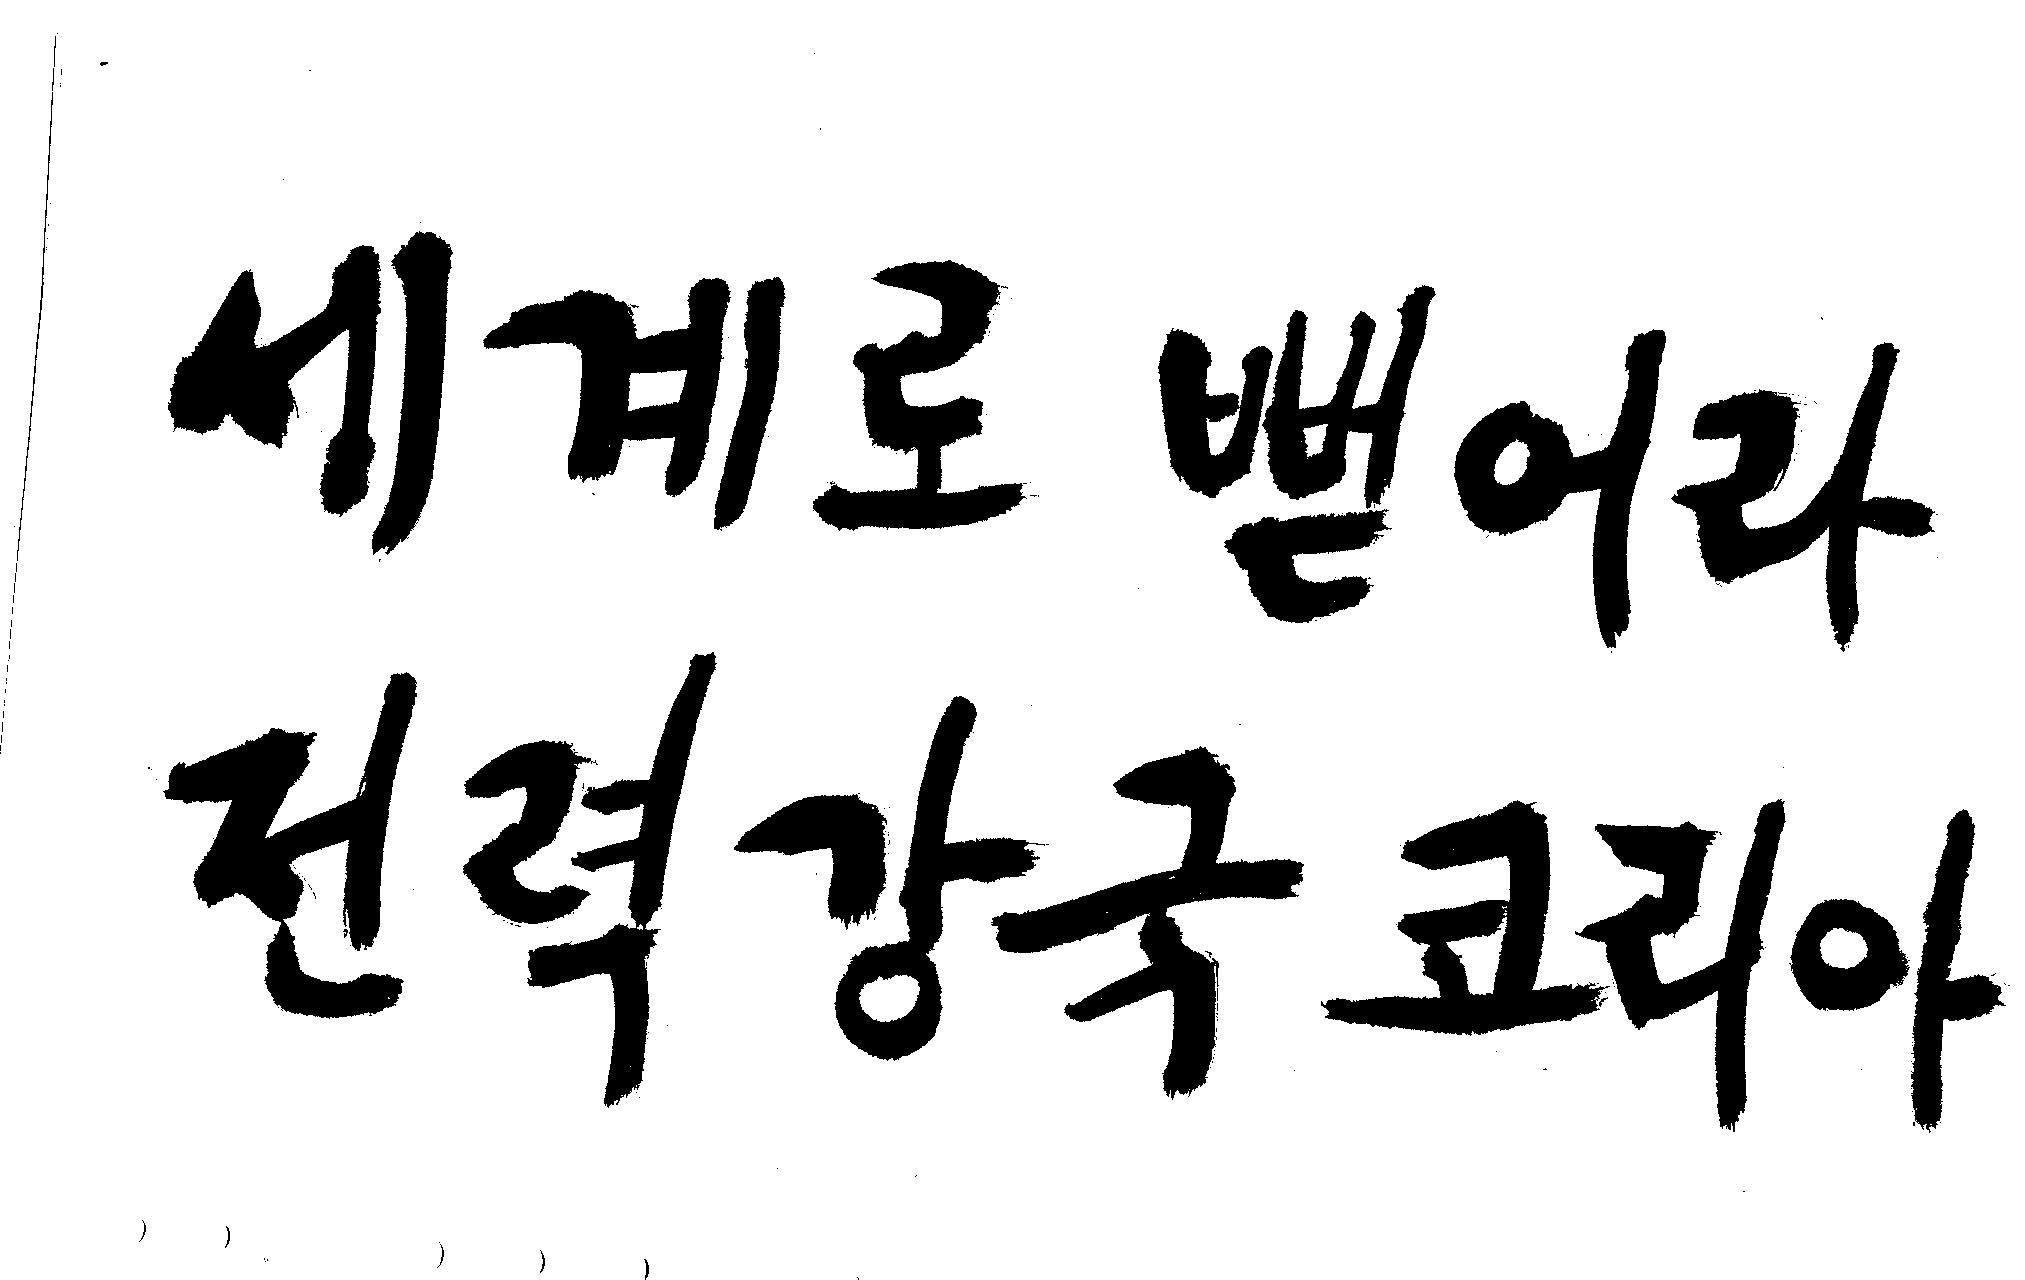 세계로 뻗어라
전력강국 코리아